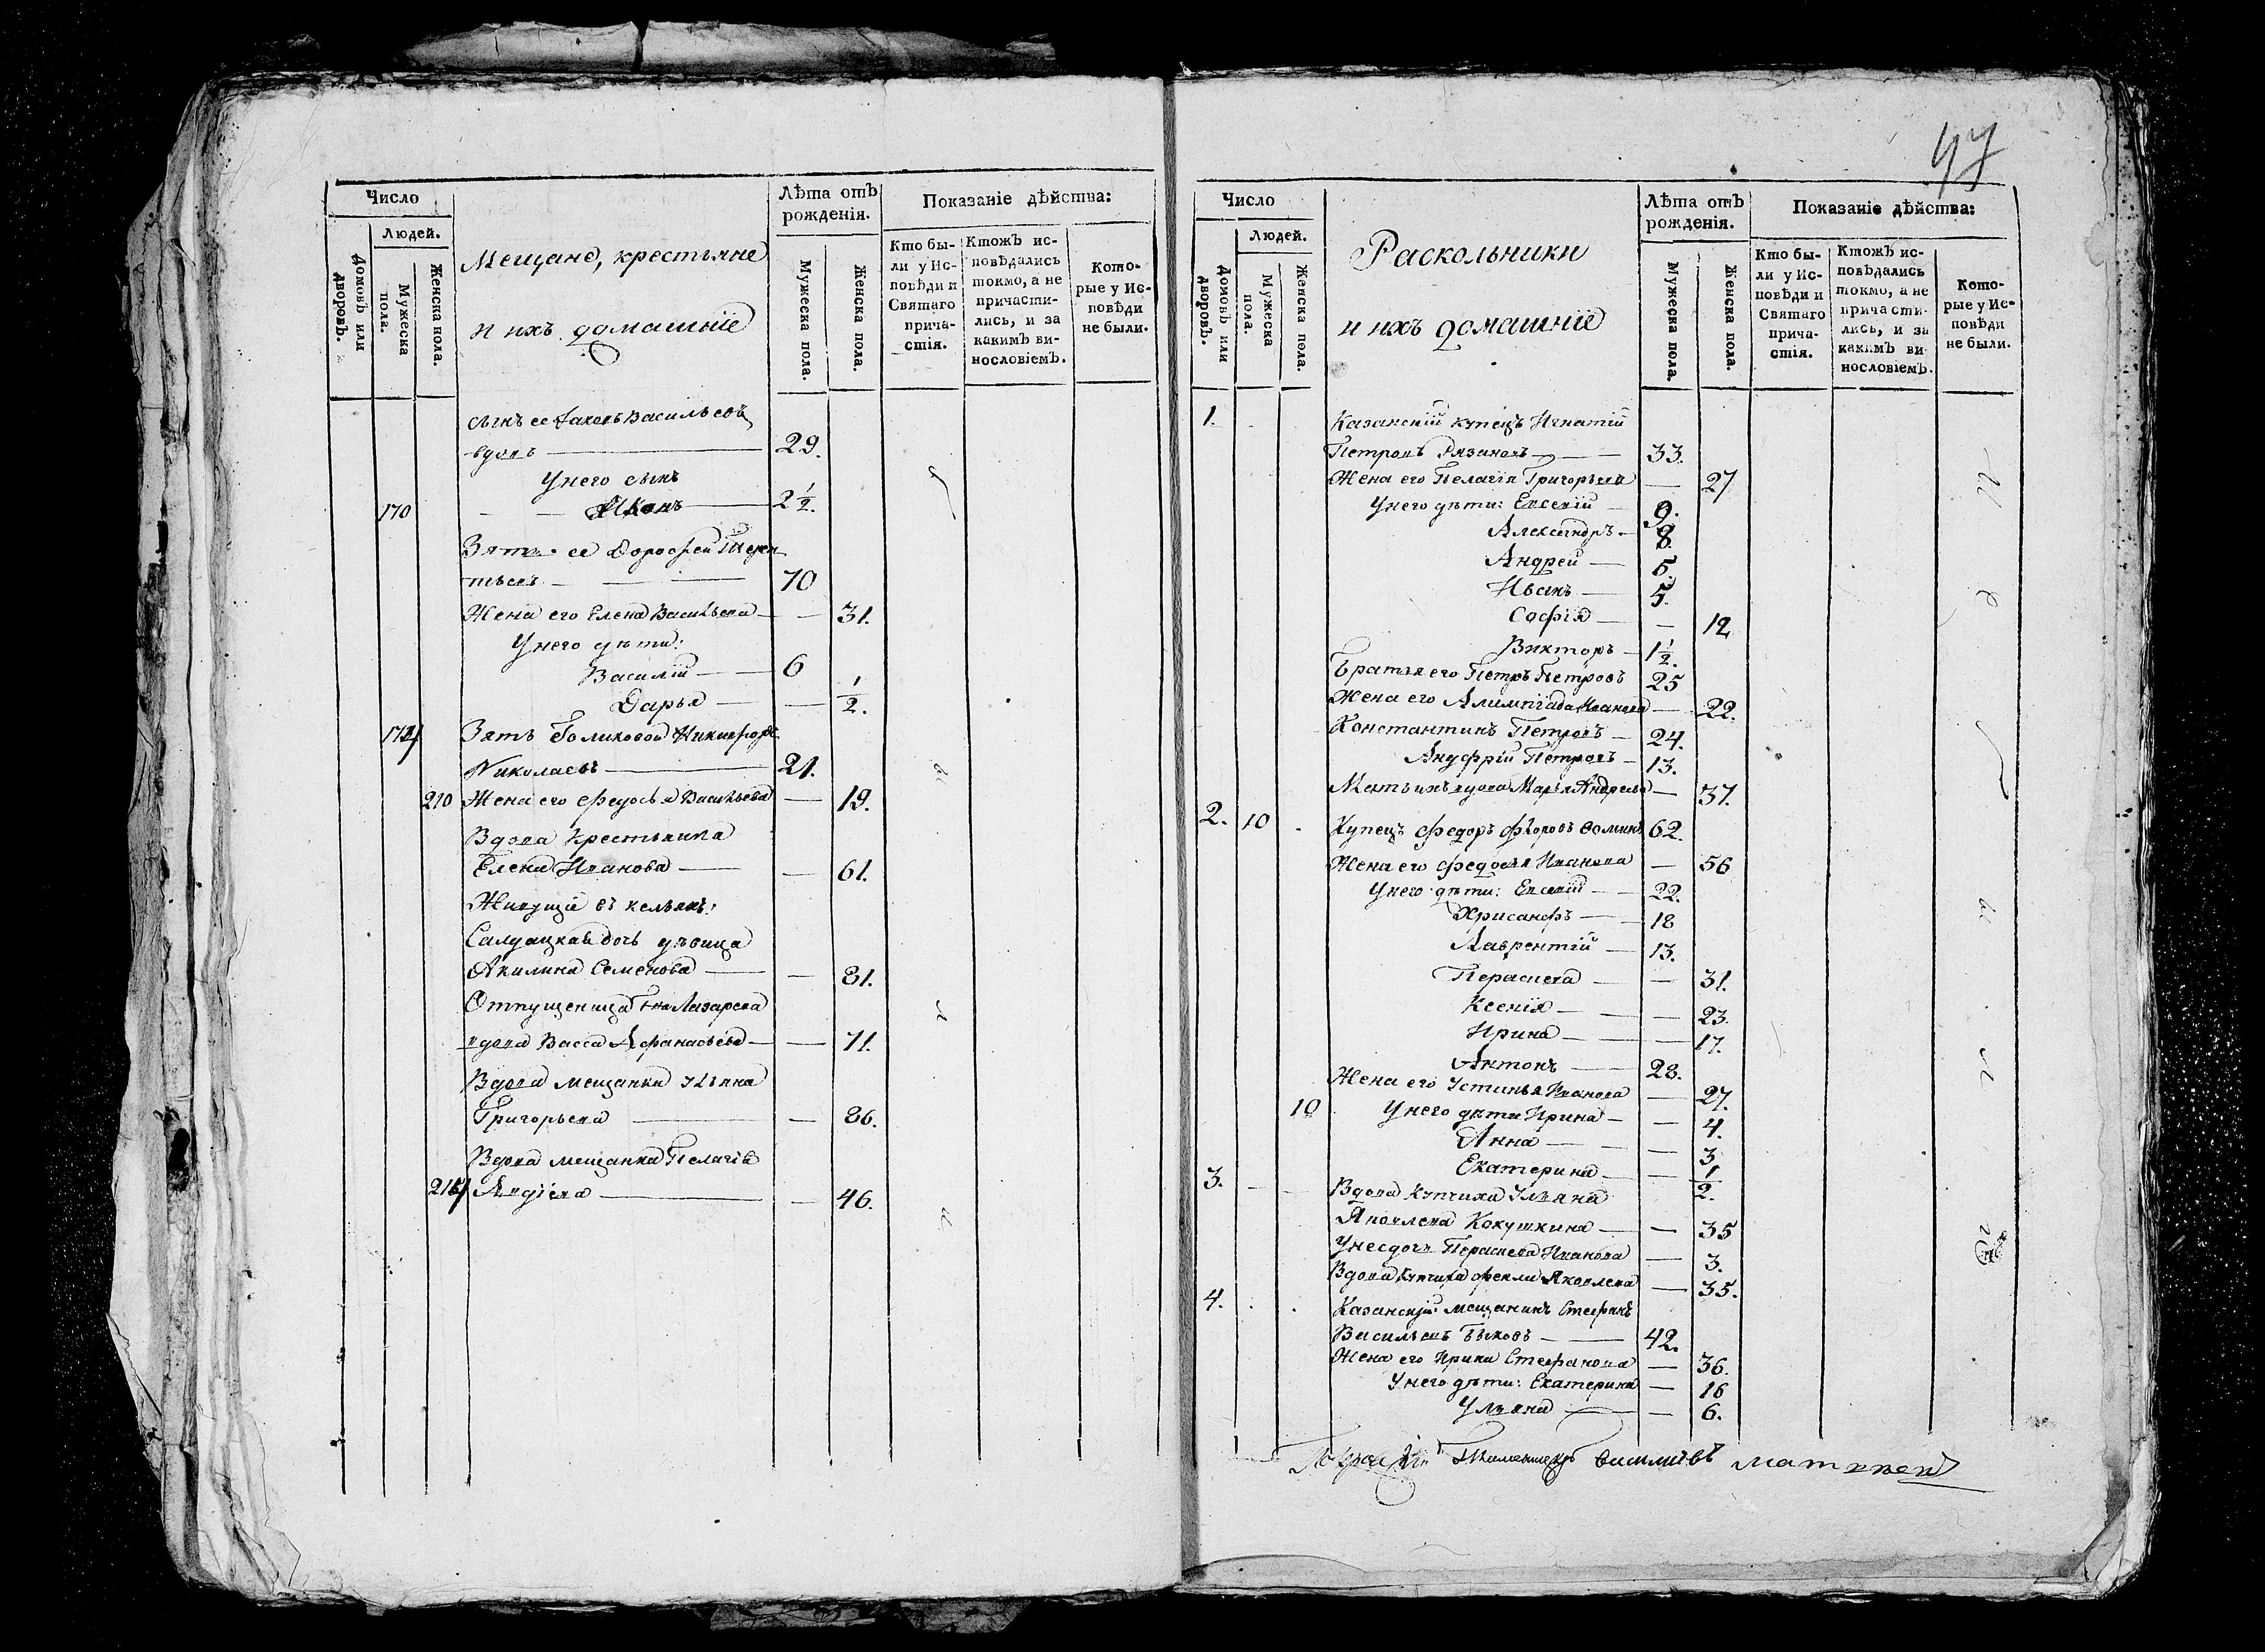 Число
Людей.
Домовъ или дворовъ.
Мужеска пола.
Женска пола.
Мещане, крестьяне
и ихъ домашніе
Лѣта отъ рожденія.
Мужеска пола.
Женска пола.
Показаніе дѣйства:
Кто бы-
ли у Ис-
повѣди и
Святаго
прича-
стія.
Ктожъ ис-
повѣдались
токмо, а не
причасти-
лись, и за
какимъ ви-
нословіемъ.
Кото-
рые у Ис-
повѣди
не были.
сынъ ее Іаковъ Васильевъ
вдовъ — 29.
У него сынъ
170 — — Иванъ — 2 1/2.
Зять ее Дорофей Терен
тьевъ — — — 70
Жена его Елена Васильева — — 31.
У него дѣти:
Василій — 6
Дарья — — 1/2.
172 Зять Голиковой Никифоръ
Николаевъ — 21.
210 Жена его Федосья Васильева — 19.
Вдова крестьянка
Елена Иванова — — 61.
Живущіе въ кельяхъ:
Салдацкая дочь дѣвица
Акилина Семенова — — 81.
Отпущеница Лазарева
вдова Васса Афанасьева — — 71.
Вдова мещанка Ульяна
Григорьева — — 86.
Вдова мещанка Пелагія
215 — — 46.
47
Число
Людей.
Домовъ или дворовъ.
Мужеска пола.
Женска пола.
Раскольники
и ихъ домашніе
Лѣта отъ рожденія.
Мужеска пола.
Женска пола.
Показаніе дѣйства:
Кто бы-
ли у Ис-
повѣди и
Святаго
прича-
стія.
Ктожъ ис-
повѣдались
токмо, а не
причасти-
лись, и за
какимъ ви-
нословіемъ.
Кото-
рые у Ис-
повѣди
не были.
1. Казанскій купецъ Игнатій
Петровъ Рязановъ — — 33.
Жена его Пелагія Григорьева — 27
У него дѣти: Евсевій — 9.
Александръ — 8.
Андрей — 6.
Иванъ — 5.
Софія — — 12
Викторъ — 1 1/2.
Братья его Петръ Петровъ 25
Жена его Алимпіада Иванова — 22.
Константинъ Петровъ — 24.
Ануфрій Петровъ — 13.
Мать ихъ вдова Марья Андреева — 37.
2. 10 Купецъ Федоръ Фоминъ 62.
Жена его Федосья Иванова — 56
У него дѣти: Евсевій — — 22.
Хрисанфъ — 18
Лаврентій — 13.
Пераскева — — 31.
Ксенія — — — 23.
Ирина — — — 17.
Антонъ — 28.
Жена его Устинья Иванова — 27.
10 У него дѣти Ирина — — 4.
Анна — — — 3
Екатерина — — 1/2.
3. — — Вдова купчиха Ульяна
Яковлева Кокушкина — — 35
У нее дочь Пераскева Иванова — 3.
Вдова купчиха Фекла Яковлева — 35.
4. Казанскій мещанинъ Стефанъ
Васильевъ Быковъ — — 42.
Жена его Ирина Стефанова — 36.
У него дѣти: Екатерина — 16
Ульяна — — 6.
Василій Матвеевъ